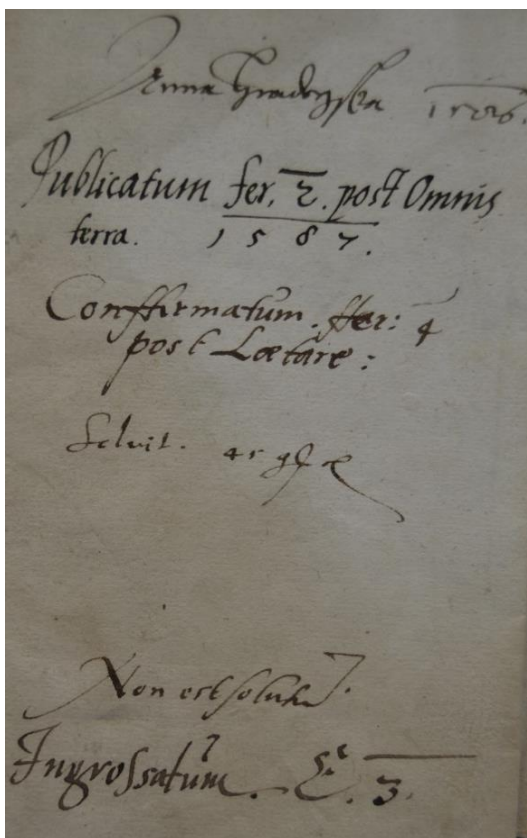 Anna
Publicatum fer. 2. post Omnis
terra. 1587.
Conffirmatum. ffer: 4
post Lætare:
Soluit. 45 g
Non est solutu
Ingrossatum. E. 3.